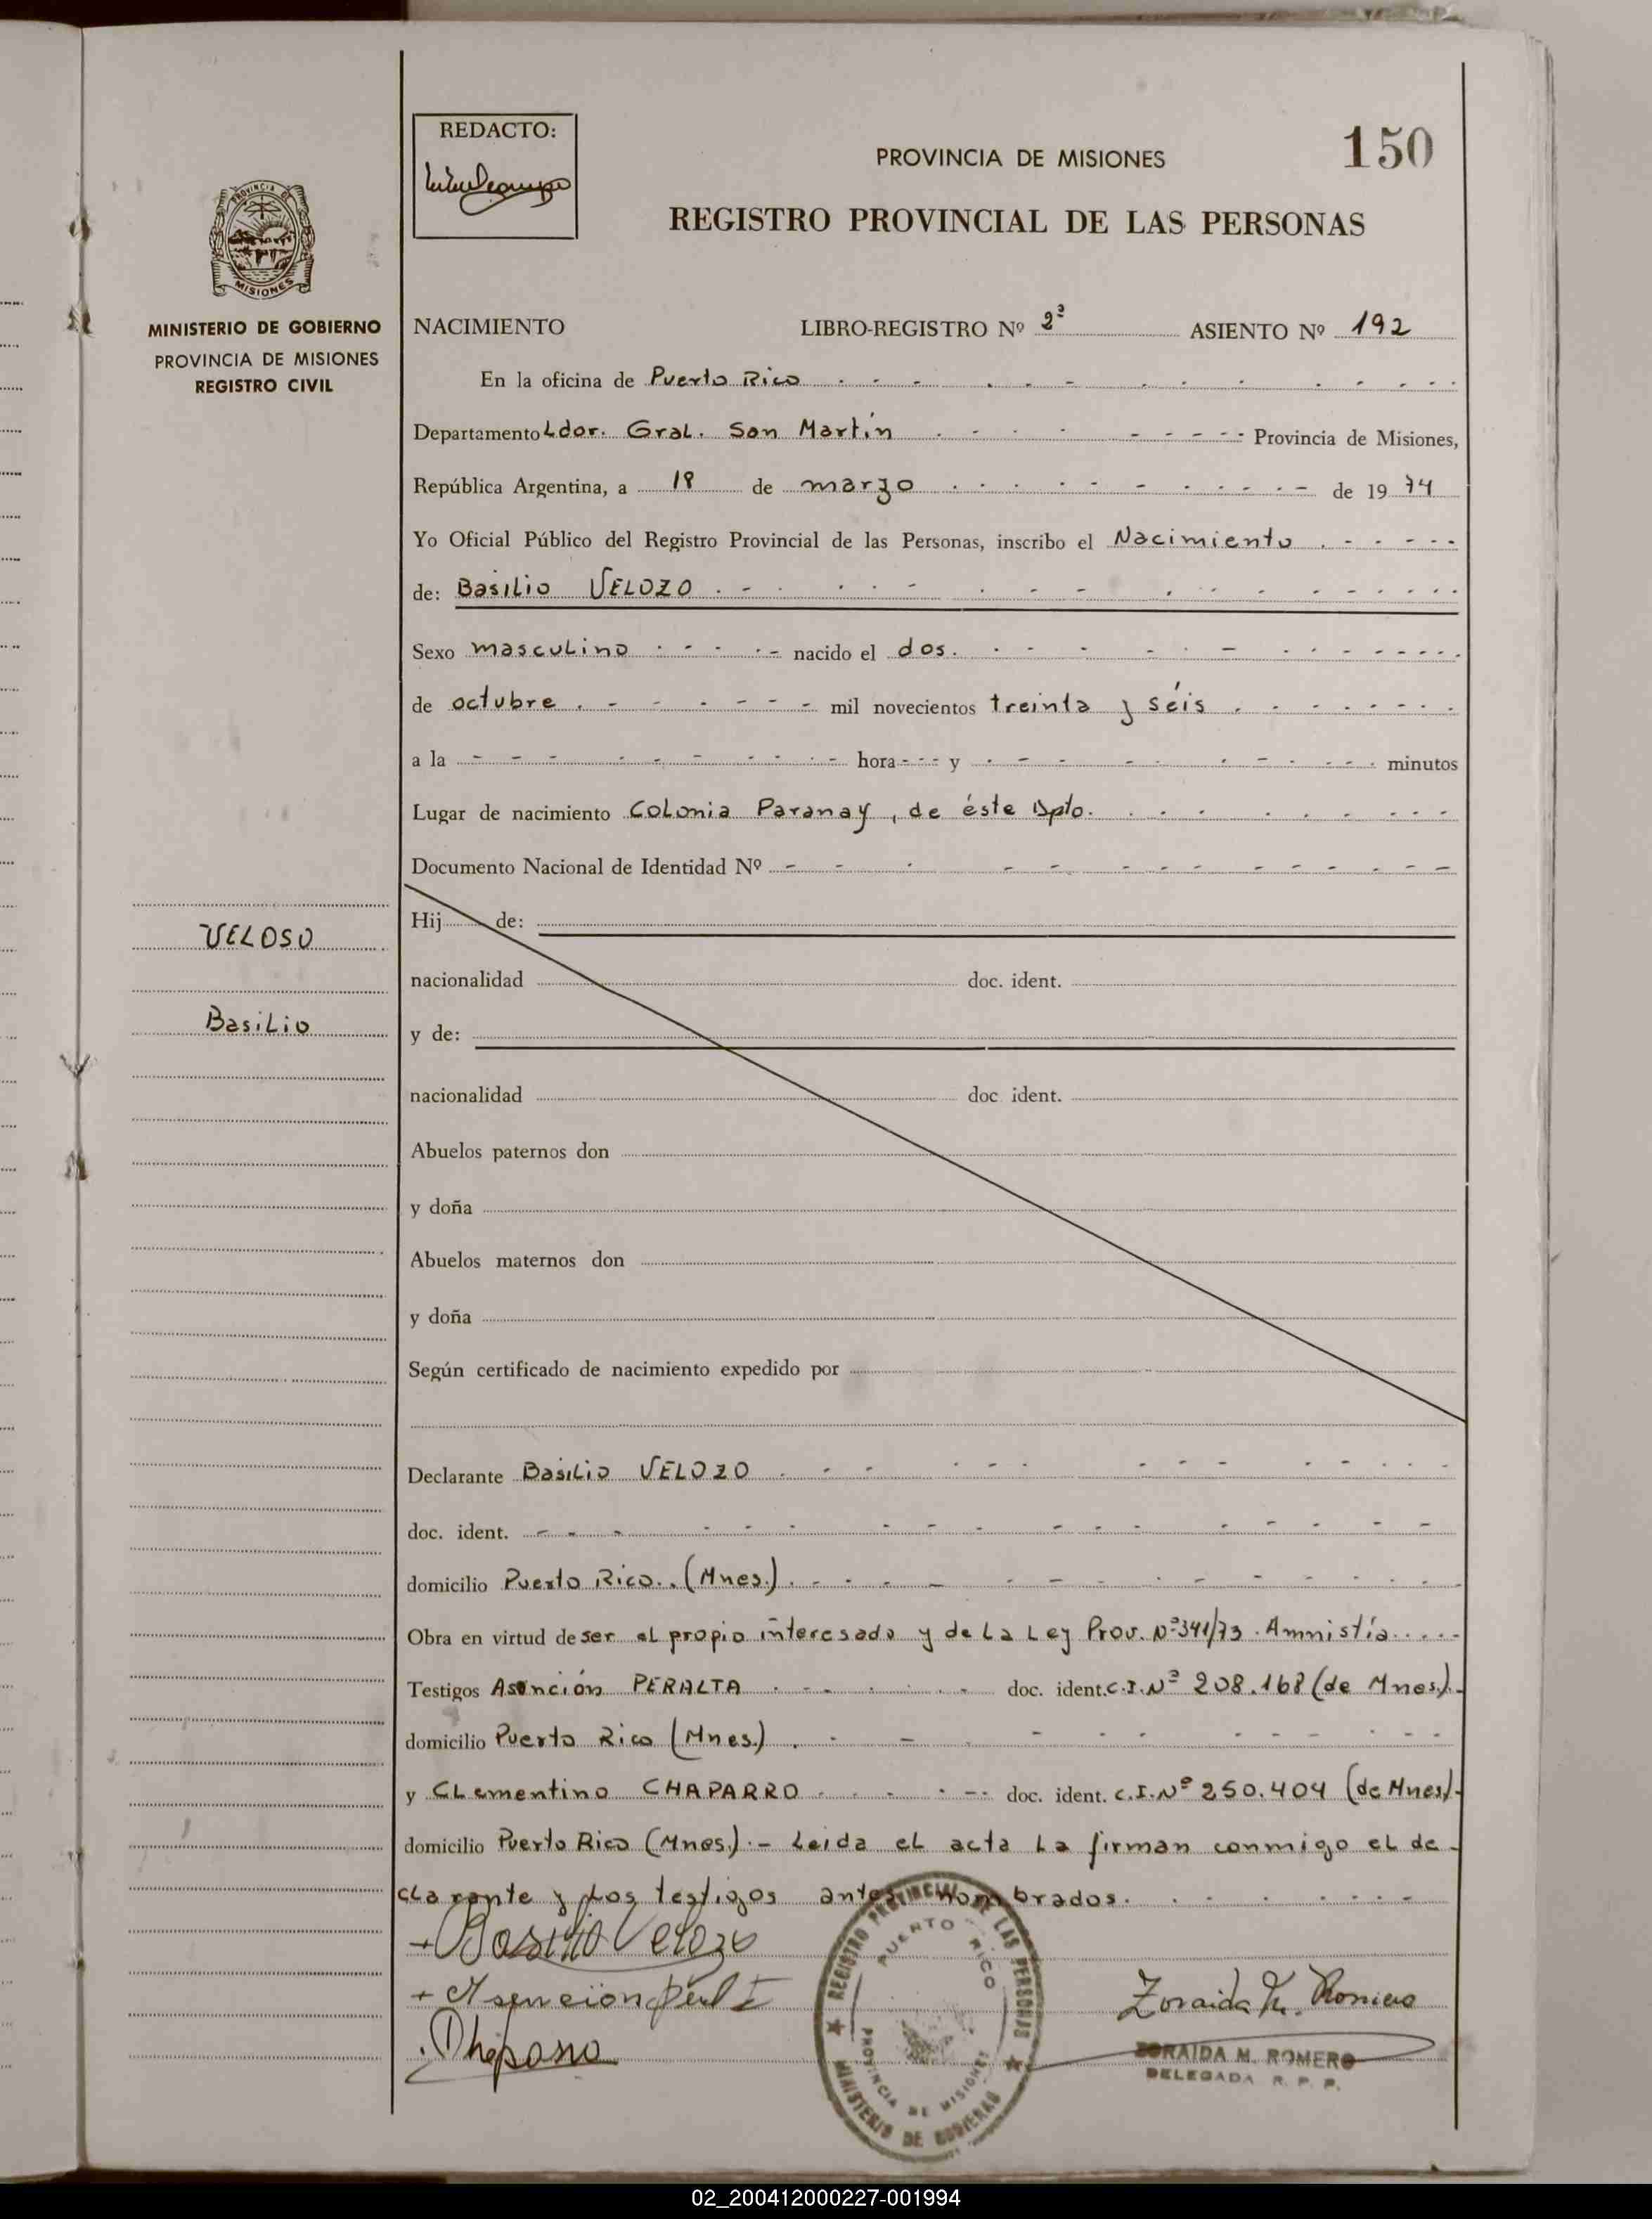 REDACTO:
PROVINCIA DE MISIONES
150
REGISTRO PROVINCIAL DE LAS PERSONAS
PROVINCIA DE
MISIONES
MINISTERIO DE GOBIERNO
PROVINCIA DE MISIONES
REGISTRO CIVIL
NACIMIENTO LIBRO-REGISTRO Nº 2º ASIENTO Nº 192
En la oficina de Puerto Rico
Departamento Ldor. Gral. San Martín Provincia de Misiones,
República Argentina, a 18 de marzo de 19 74
Yo Oficial Público del Registro Provincial de las Personas, inscribo el Nacimiento
de: Basilio VELOZO
Sexo masculino nacido el dos.
de octubre mil novecientos treinta y séis
a la hora y minutos
Lugar de nacimiento Colonia Paranay, de éste Dpto.
Documento Nacional de Identidad Nº
Hij de:
VELOSO
nacionalidad doc. ident.
Basilio
y de:
nacionalidad doc ident.
Abuelos paternos don
y doña
Abuelos maternos don
y doña
Según certificado de nacimiento expedido por
Declarante Basilio VELOZO
doc. ident.
domicilio Puerto Rico. (Mnes.)
Obra en virtud de ser el propio interesado y de la Ley Prov. Nº 341/73. Amnistía
Testigos Asención PERALTA doc. ident. C.I. Nº 208.168 (de Mnes).
domicilio Puerto Rico (Mnes.)
y Clementino CHAPARRO doc. ident. C.I. Nº 250.404 (de Mnes).
domicilio Puerto Rico (Mnes.).- Leida el acta la firman conmigo el de
clarante y los testigos antes nombrados.
Basilio Velozo
Asencion
Zoraida M. Romero
REGISTRO PROVINCIAL DE LAS PERSONAS
PUERTO RICO
PROVINCIA DE MISIONES
MINISTERIO DE GOBIERNO
ZORAIDA M. ROMERO
DELEGADA R. P. P.
02_200412000227-001994